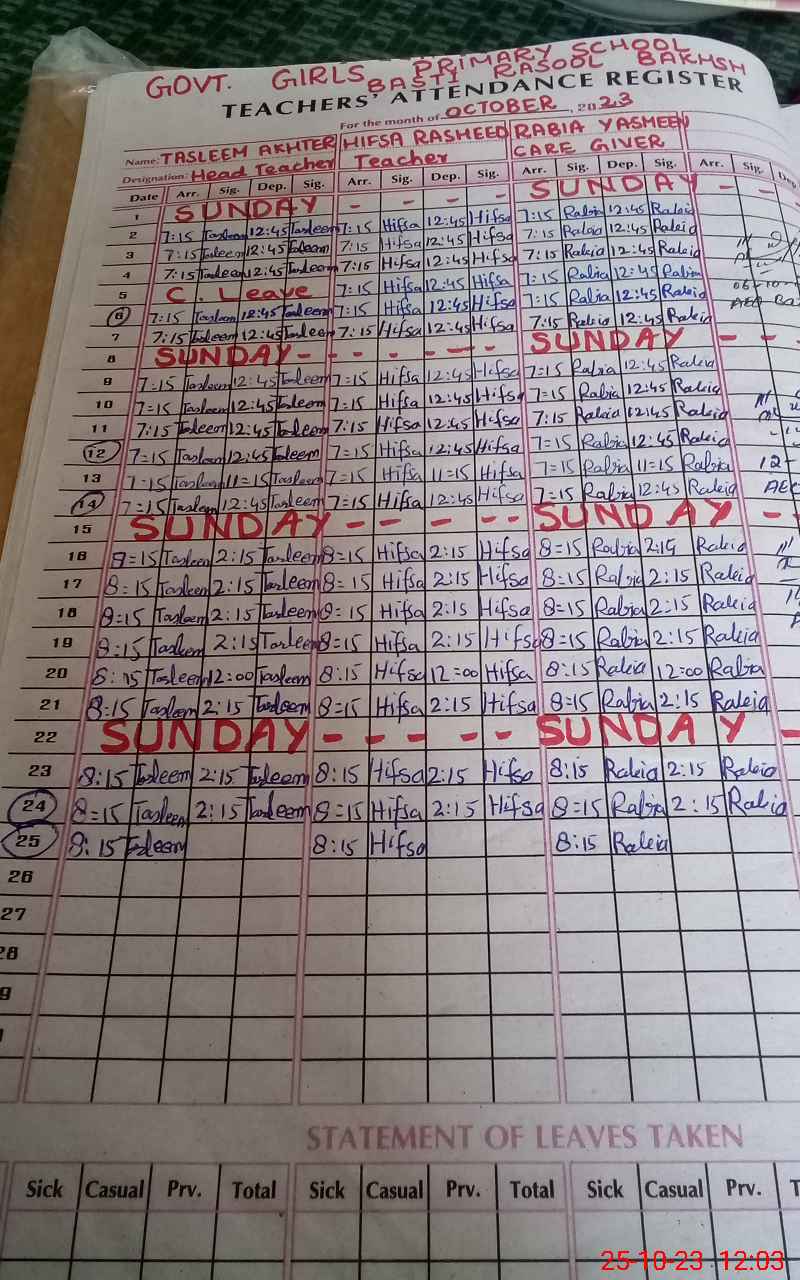 GOVT. GIRLS PRIMARY SCHOOL
BASTI RASOOL BAKHSH
TEACHERS' ATTENDANCE REGISTER
For the month of OCTOBER, 2023
Name: TASLEEM AKHTER HIFSA RASHEED RABIA YASMEEN
Designation: Head Teacher Teacher CARE GIVER
Date Arr. Sig. Dep. Sig. Arr. Sig. Dep. Sig. Arr. Sig. Dep. Sig. Arr. Sig. Dep
1 SUNDAY - - - - SUNDAY - -
2 7:15 Tasleem 12:45 Tasleem 7:15 Hifsa 12:45 Hifsa 7:15 Rabia 12:45 Rabia
3 7:15 Tasleem 12:45 Tasleem 7:15 Hifsa 12:45 Hifsa 7:15 Rabia 12:45 Rabia
4 7:15 Tasleem 12:45 Tasleem 7:15 Hifsa 12:45 Hifsa 7:15 Rabia 12:45 Rabia
5 C. Leave 7:15 Hifsa 12:45 Hifsa 7:15 Rabia 12:45 Rabia
6 7:15 Tasleem 12:45 Tasleem 7:15 Hifsa 12:45 Hifsa 7:15 Rabia 12:45 Rabia
7 7:15 Tasleem 12:45 Tasleem 7:15 Hifsa 12:45 Hifsa 7:15 Rabia 12:45 Rabia
8 SUNDAY - - - - - - SUNDAY - -
9 7=15 Tasleem 12:45 Tasleem 7=15 Hifsa 12:45 Hifsa 7=15 Rabia 12:45 Rabia
10 7=15 Tasleem 12:45 Tasleem 7=15 Hifsa 12:45 Hifsa 7=15 Rabia 12:45 Rabia
11 7:15 Tasleem 12:45 Tasleem 7:15 Hifsa 12:45 Hifsa 7:15 Rabia 12:45 Rabia
12 7=15 Tasleem 12:45 Tasleem 7=15 Hifsa 12:45 Hifsa 7=15 Rabia 12:45 Rabia
13 7=15 Tasleem 11=15 Tasleem 7=15 Hifsa 11=15 Hifsa 7=15 Rabia 11=15 Rabia 12-
14 7=15 Tasleem 12:45 Tasleem 7=15 Hifsa 12:45 Hifsa 7=15 Rabia 12:45 Rabia
15 SUNDAY - - - - - SUNDAY - -
16 8=15 Tasleem 2:15 Tasleem 8=15 Hifsa 2:15 Hifsa 8=15 Rabia 2:15 Rabia
17 8=15 Tasleem 2:15 Tasleem 8=15 Hifsa 2:15 Hifsa 8=15 Rabia 2:15 Rabia
18 8=15 Tasleem 2:15 Tasleem 8=15 Hifsa 2:15 Hifsa 8=15 Rabia 2:15 Rabia
19 8=15 Tasleem 2:15 Tasleem 8=15 Hifsa 2:15 Hifsa 8=15 Rabia 2:15 Rabia
20 8:15 Tasleem 12=00 Tasleem 8:15 Hifsa 12=00 Hifsa 8:15 Rabia 12=00 Rabia
21 8=15 Tasleem 2:15 Tasleem 8=15 Hifsa 2:15 Hifsa 8=15 Rabia 2:15 Rabia
22 SUNDAY - - - - - SUNDAY -
23 8:15 Tasleem 2:15 Tasleem 8:15 Hifsa 2:15 Hifsa 8:15 Rabia 2:15 Rabia
24 8=15 Tasleem 2:15 Tasleem 8=15 Hifsa 2:15 Hifsa 8=15 Rabia 2:15 Rabia
25 8:15 Tasleem 8:15 Hifsa 8:15 Rabia
26
27
28
9
STATEMENT OF LEAVES TAKEN
Sick Casual Prv. Total Sick Casual Prv. Total Sick Casual Prv. T
25-10-23 12:03